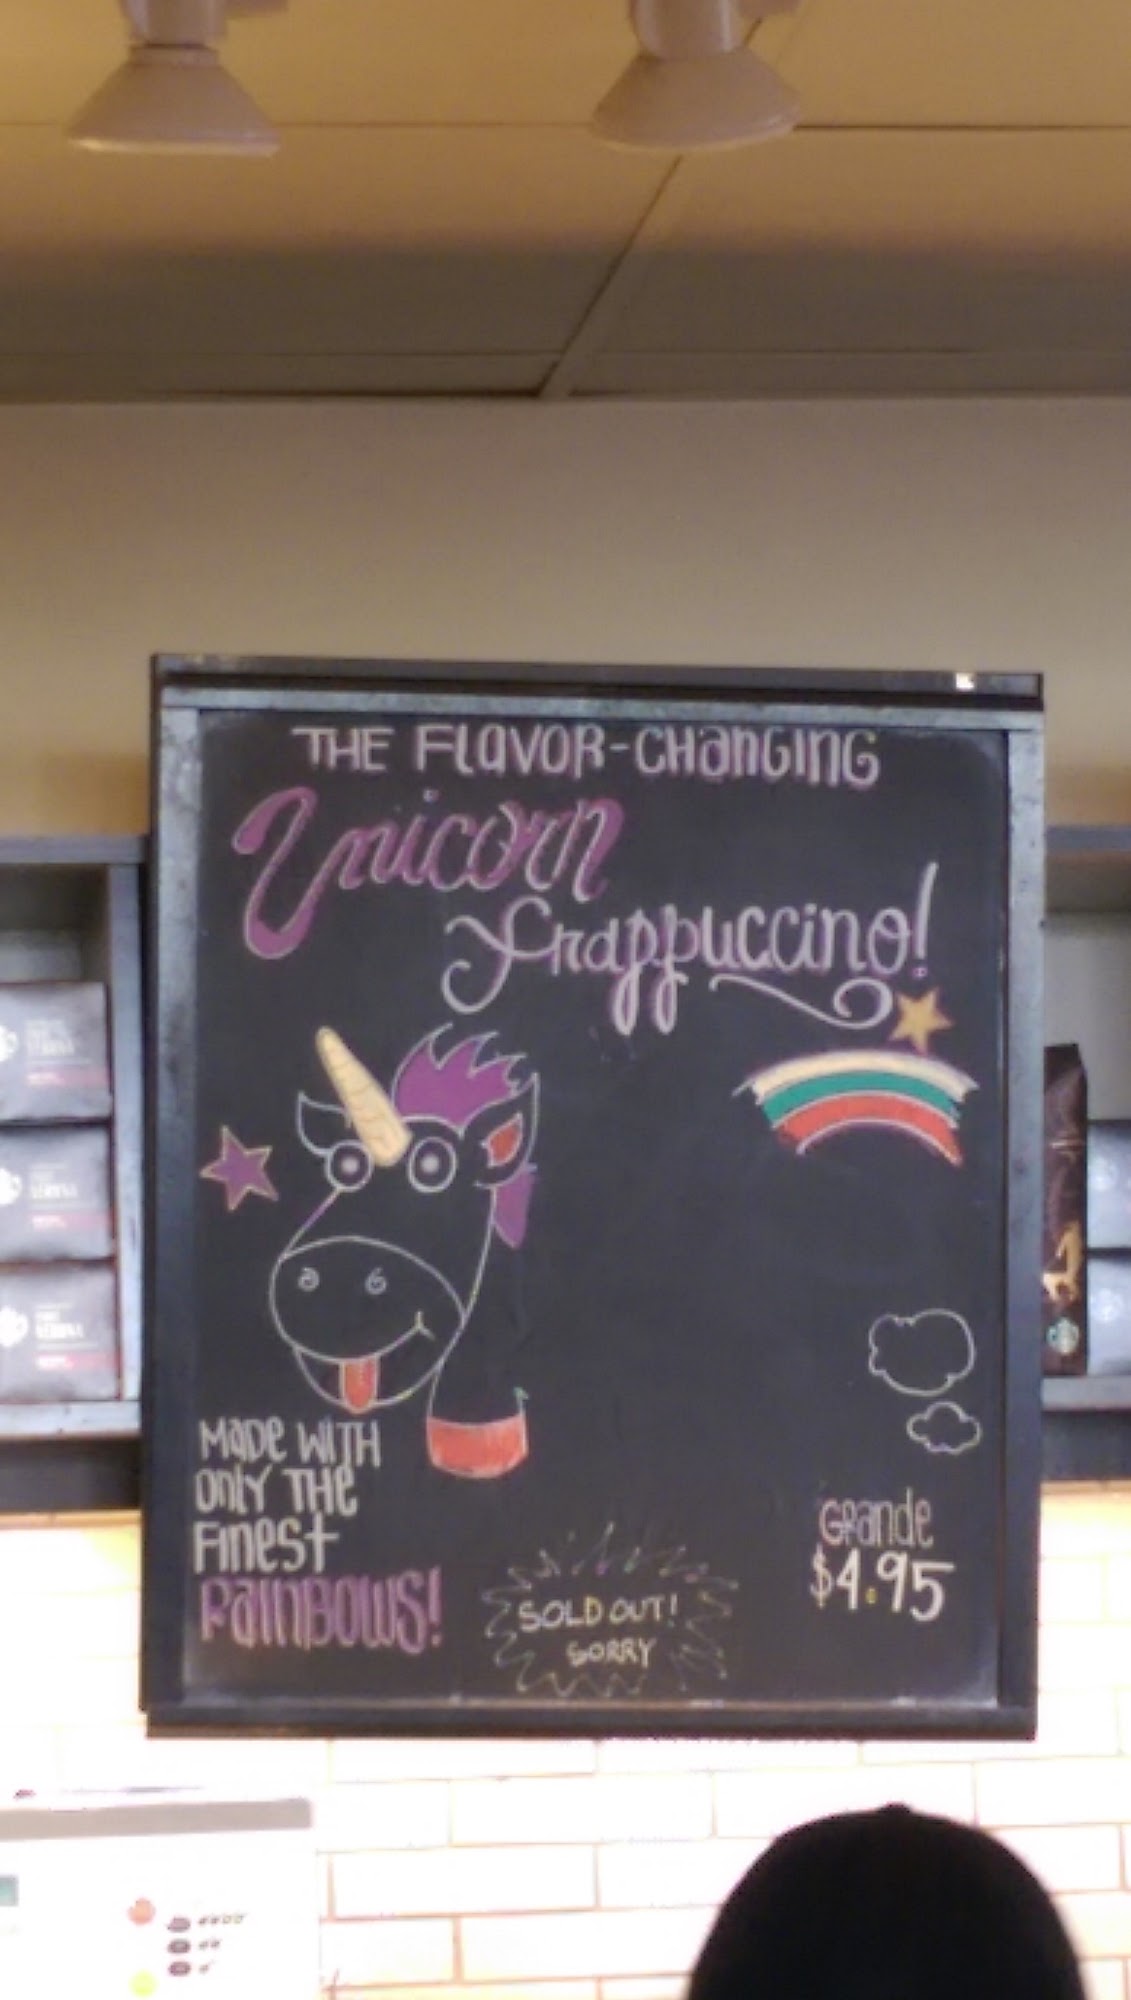 THE FLAVOR-CHANGING
Unicorn
Frappuccino!
MADE WITH
ONLY THE
FINEST
RAINBOWS!
SOLD OUT!
SORRY
GRANDE
$4.95
VERONA
VERONA
VERONA